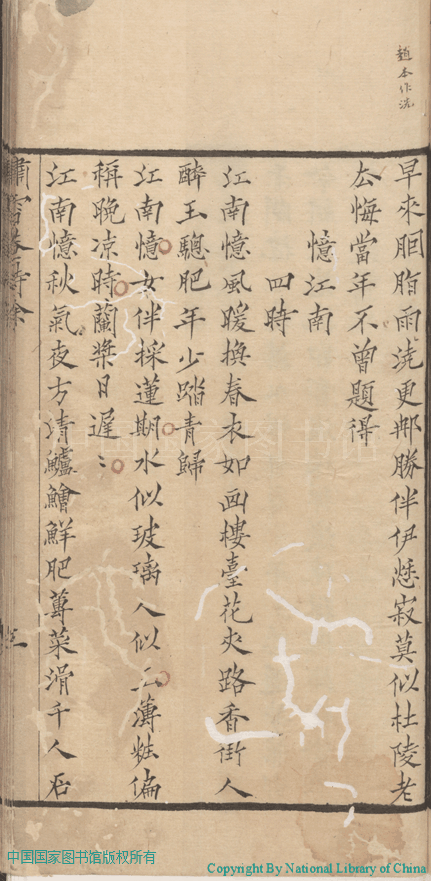 趙本作洗
早來胭脂雨澆更邮勝伴伊愁寂莫似杜陵老
厺悔當年不曾題得
憶江南
四時
江南憶風暖換春衣如画樓臺花夾路香街人
醉玉驄肥年少踏青歸
江南憶女伴採蓮期水似玻璃人似玉薄粧偏
稱晚凉時蘭槳日遲〻
江南憶秋氣夜方清鱸鱠鮮肥蓴菜滑千人石
中国国家图书馆
中国国家图书馆版权所有
Copyright By National Library of China